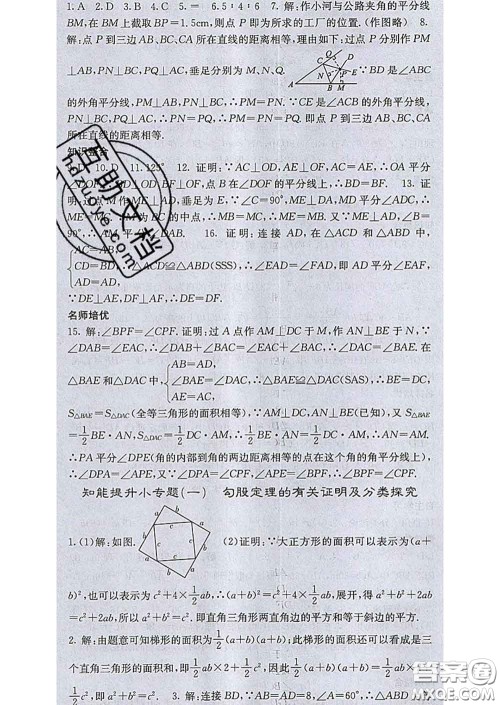 1.A 2.D 3.B 4.C 5.= 6.5∶4∶6 7.解:作小河与公路夹角的平分线
BM,在BM上截取BP=1.5cm,则点P即为所求的工厂的位置.(作图略) 8.
解:点P到三边AB、BC、CA所在直线的距离相等,理由如下:过点P分别作PM
⊥AB,PN⊥BC,PQ⊥AC,垂足分别为M、N、Q. ∵BD是∠ABC
的外角平分线,PM⊥AB,PN⊥BC,∴PM=PN. ∵CE是∠ACB的外角平分线,
PN⊥BC,PQ⊥AC,∴PN=PQ,∴PM=PN=PQ. 即点P到三边AB、BC、CA
所在直线的距离相等.
10.D 11.125° 12.证明:∵AC⊥OD,AE⊥OF,AC=AE,∴OA平分
BF⊥OF,∴点B在∠DOF的平分线上,∴BD=BF. 13.证
明:过点M作ME⊥AD,垂足为E. ∵∠C=90°,ME⊥DA,MD平分∠ADC,
∴ME=MC. ∵M为BC的中点,∴MB=MC,∴ME=MB. 又∵ME⊥AD,∠B=
∴AM平分∠DAB. 16.证明:连接AD,在△ACD和△ABD中,
AC=AB,
CD=BD, ∴△ACD≌△ABD(SSS),∴∠EAD=∠FAD,即AD平分∠EAF,
AD=AD,
∵DE⊥AE,DF⊥AF,∴DE=DF.
名师培优
15.解:∠BPF=∠CPF. 证明:过A点作AM⊥DC于M,作AN⊥BE于N,∵
∠DAB=∠EAC,∴∠DAB+∠BAC=∠EAC+∠BAC,∴∠DAC=∠BAE. 在
AB=AD,
△BAE和△DAC中,∵ ∠BAE=∠DAC, ∴△BAE≌△DAC(SAS),∴BE=DC,
AE=AC,
S△BAE=S△DAC(全等三角形的面积相等),∵AM⊥DC,AN⊥BE(已知),又S△BAE
=1/2BE·AN,S△DAC=1/2DC·AM,∴1/2BE·AN=1/2DC·AM,∴AM=AN.
∴PA平分∠DPE(角的内部到角的两边距离相等的点在这个角的角平分线上),
∴∠APD=∠APE,又∵∠DPA=∠CPF,∠APE=∠BPF,∴∠BPF=∠CPF.
知能提升小专题(一) 勾股定理的有关证明及分类探究
1.(1)解:如图. (2)证明:∵大正方形的面积可以表示为(a+
b)²,也可以表示为c²+4×1/2ab,∴(a+b)²=c²+4×1/2ab,展开,得a²+b²+2ab
=c²+2ab,所以a²+b²=c². 即直角三角形两直角边的平方和等于斜边的平方.
2.解:由题意可知梯形的面积为1/2(a+b)(a+b);此梯形的面积还可以看成是三
个直角三角形的面积和,即1/2ab×2+1/2c²,因此1/2(a+b)(a+b)=1/2ab×2+
1/2c²,即a²+b²=c². 3.解:连接BD,∵AB=AD=8,∠A=60°,∴△ABD是等
互助文档
huzuoye.com
答案圈
MXQE.COM